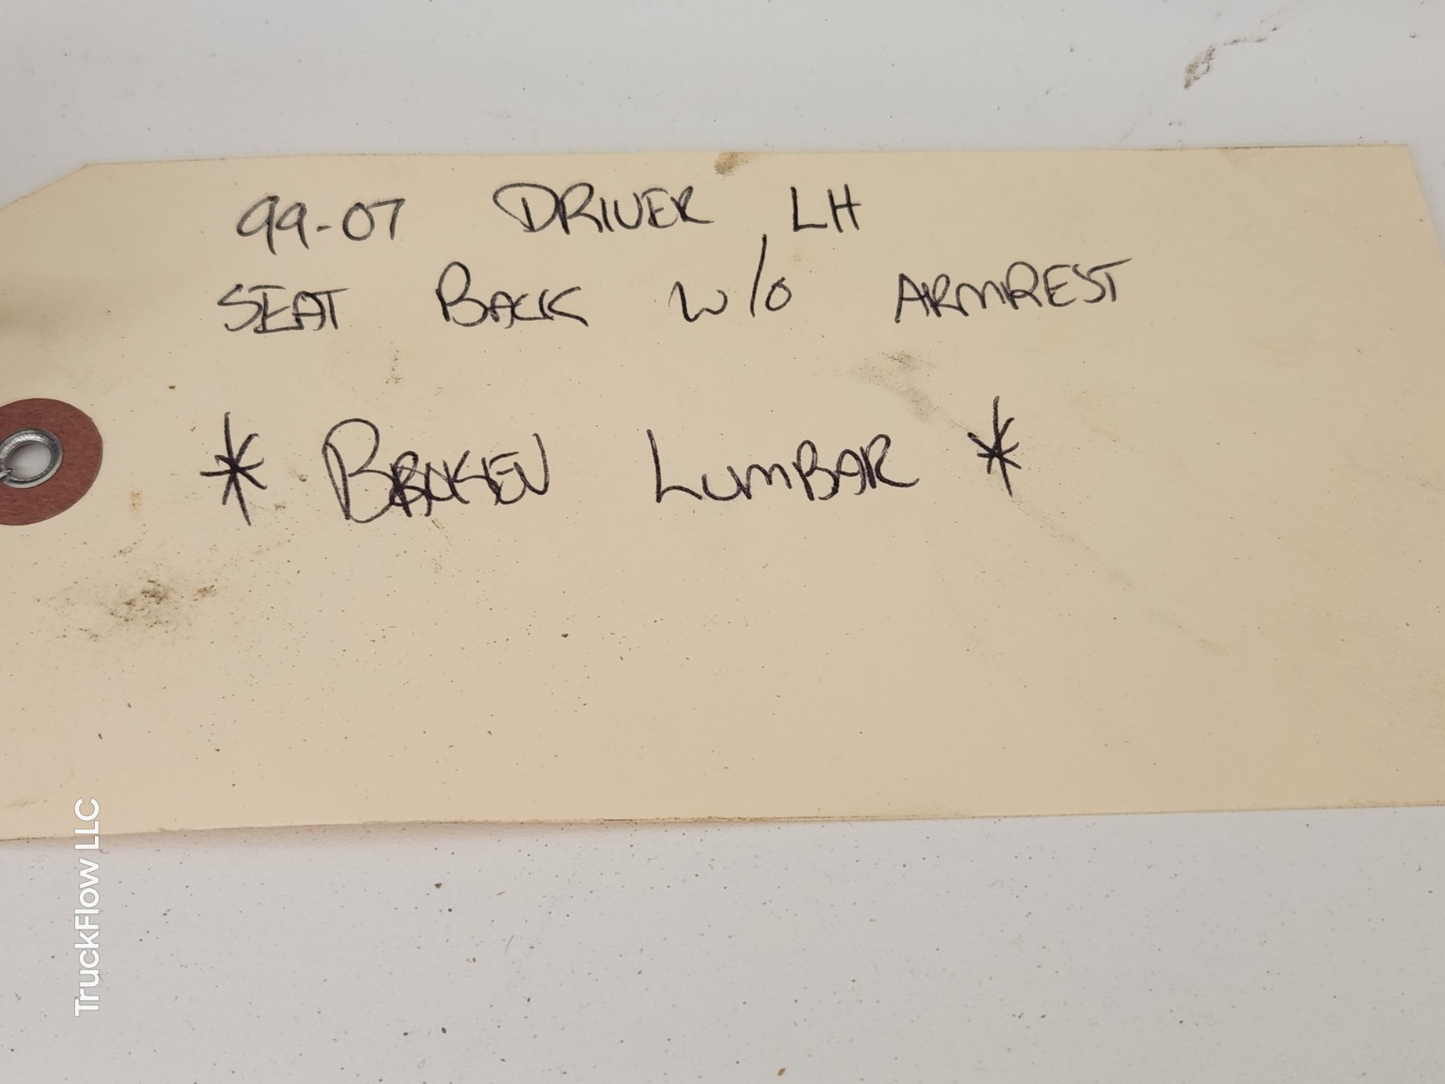 99-07 DRIVER LH
SEAT BACK w/o ARMREST
* BROKEN LUMBAR *
TruckFlow LLC